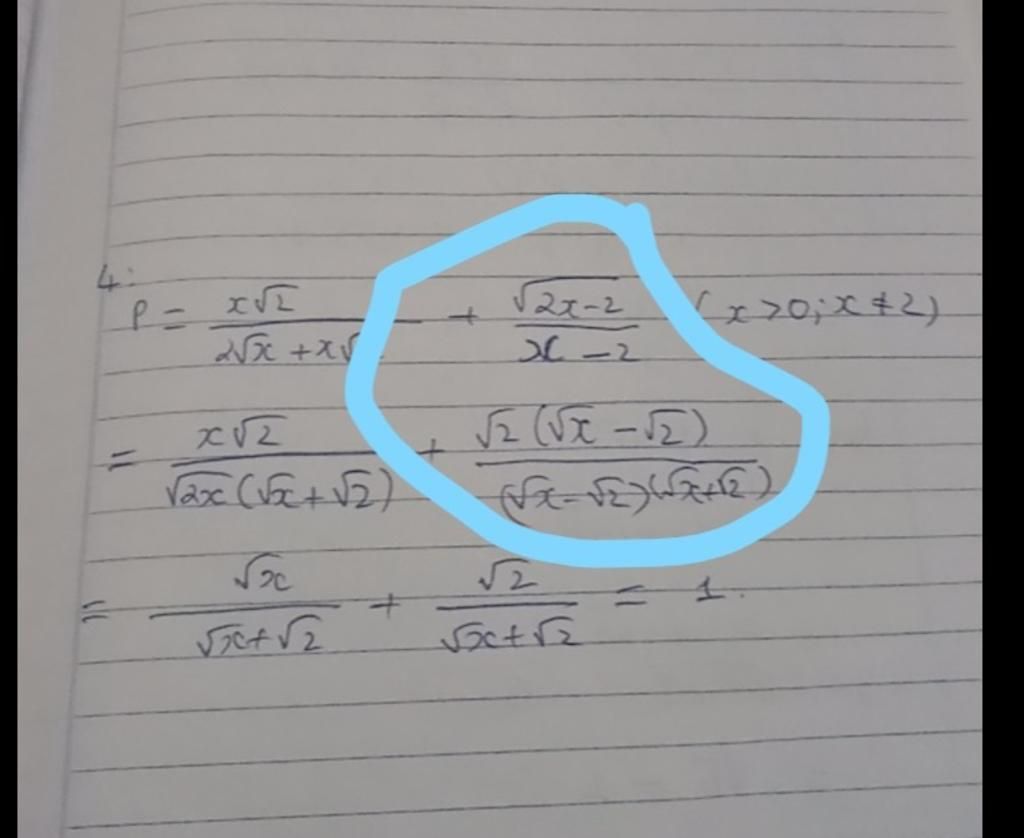 4:
P = x√2 / 2√x + x√ + √2x-2 / x-2 (x>0; x≠2)
= x√2 / √2x(√x+√2) + √2(√x-√2) / (√x-√2)(√x+√2)
= √x / √x+√2 + √2 / √x+√2 = 1.